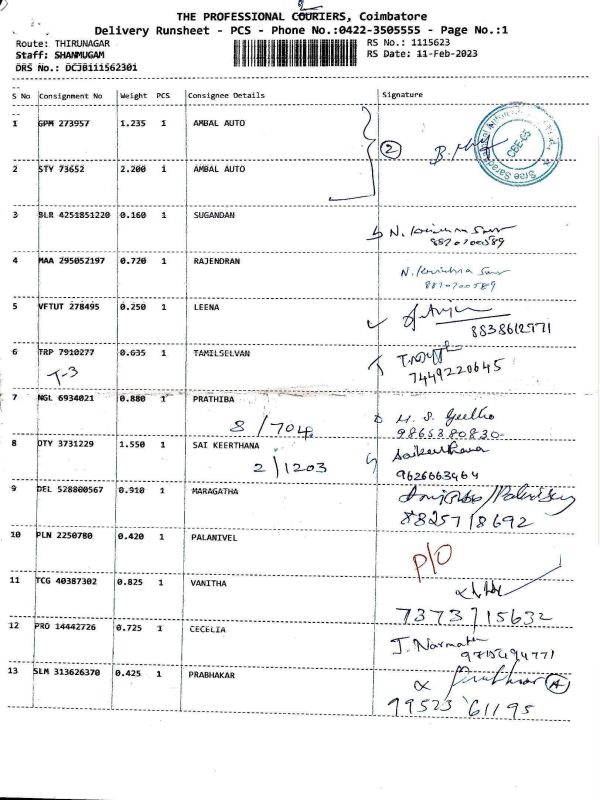 2
THE PROFESSIONAL COURIERS, Coimbatore
Delivery Runsheet - PCS - Phone No.:0422-3505555 - Page No.:1
Route: THIRUNAGAR RS No.: 1115623
Staff: SHANMUGAM RS Date: 11-Feb-2023
DRS No.: DCJB111562301
S No Consignment No Weight PCS Consignee Details Signature
1 GPM 273957 1.235 1 AMBAL AUTO
2
CBE-05
2 STY 73652 2.200 1 AMBAL AUTO
3 BLR 4251851220 0.160 1 SUGANDAN
N.
8870700589
4 MAA 295052197 0.720 1 RAJENDRAN
N. Krishna
8870700589
5 VFTUT 278495 0.250 1 LEENA
8838612771
6 TRP 7910277 0.635 1 TAMILSELVAN
T-3
7449220645
7 NGL 6934021 0.880 1 PRATHIBA
8/704
M. S. Geetha
9865380830
8 OTY 3731229 1.550 1 SAI KEERTHANA
2/1203
Saikeerthana
9626663464
9 DEL 528800567 0.910 1 MARAGATHA
8825718692
10 PLN 2250780 0.420 1 PALANIVEL
P/O
11 TCG 40387302 0.825 1 VANITHA
7373715632
12 PRO 14442726 0.725 1 CECELIA
J. Normate
9715494771
13 SLM 313626370 0.425 1 PRABHAKAR
Prabhakar A
99523 61195